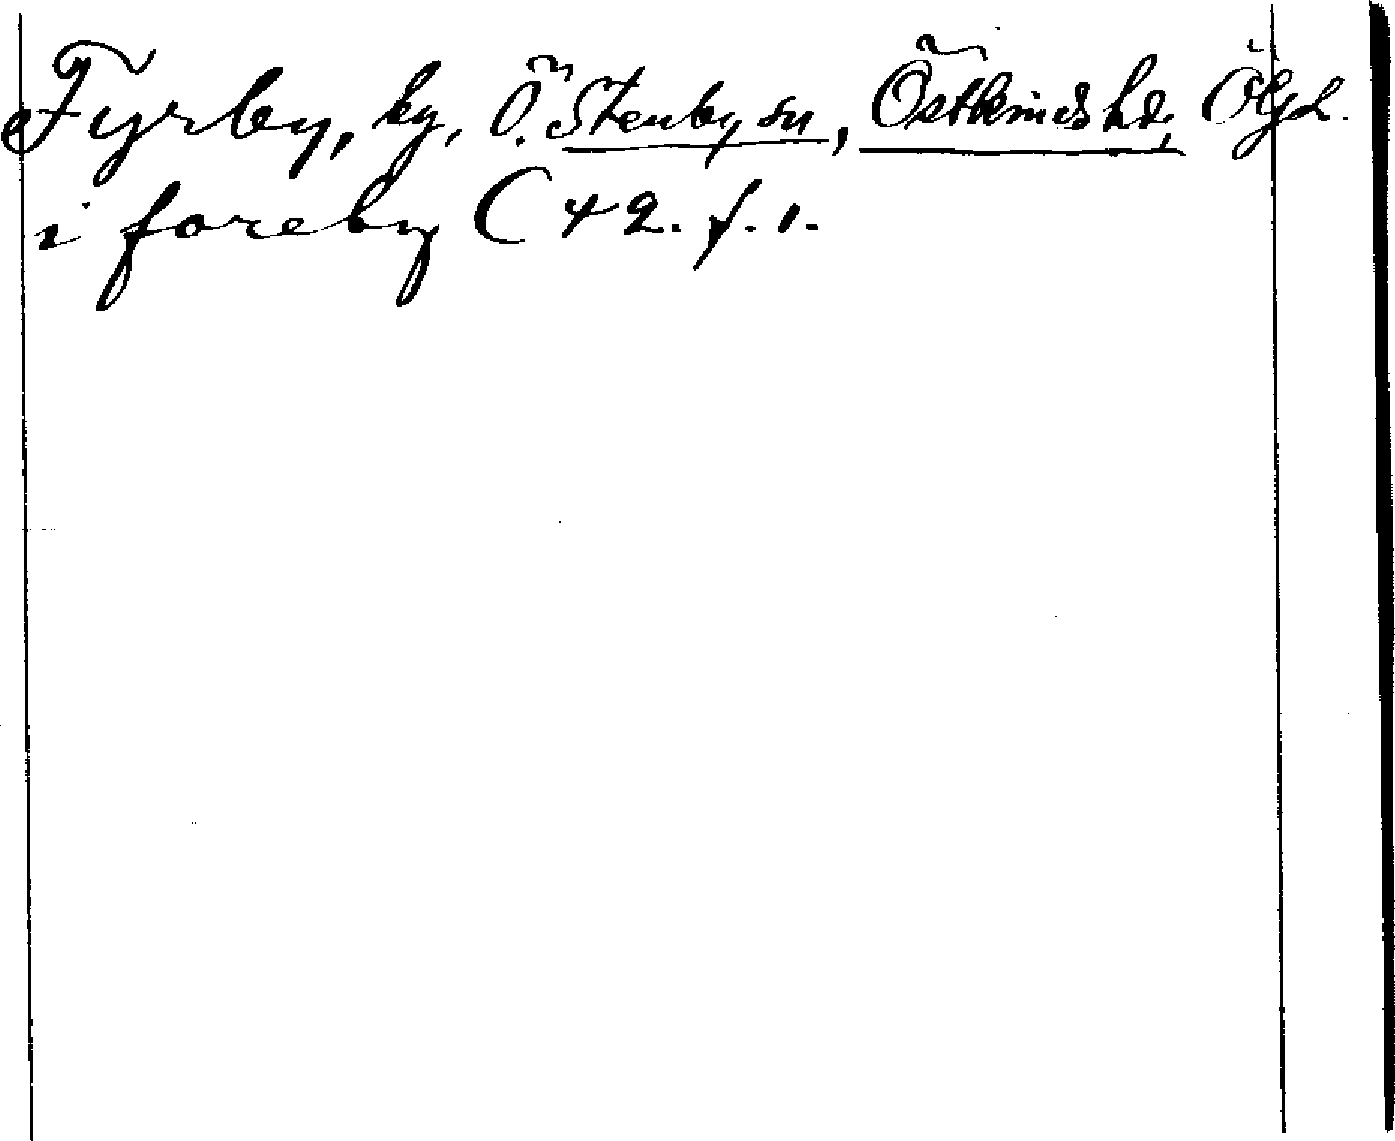 Fyrby, by, Ö. Stenby sn, Östkinds hd, Ögtl.
i foreby C 42. f. 1.